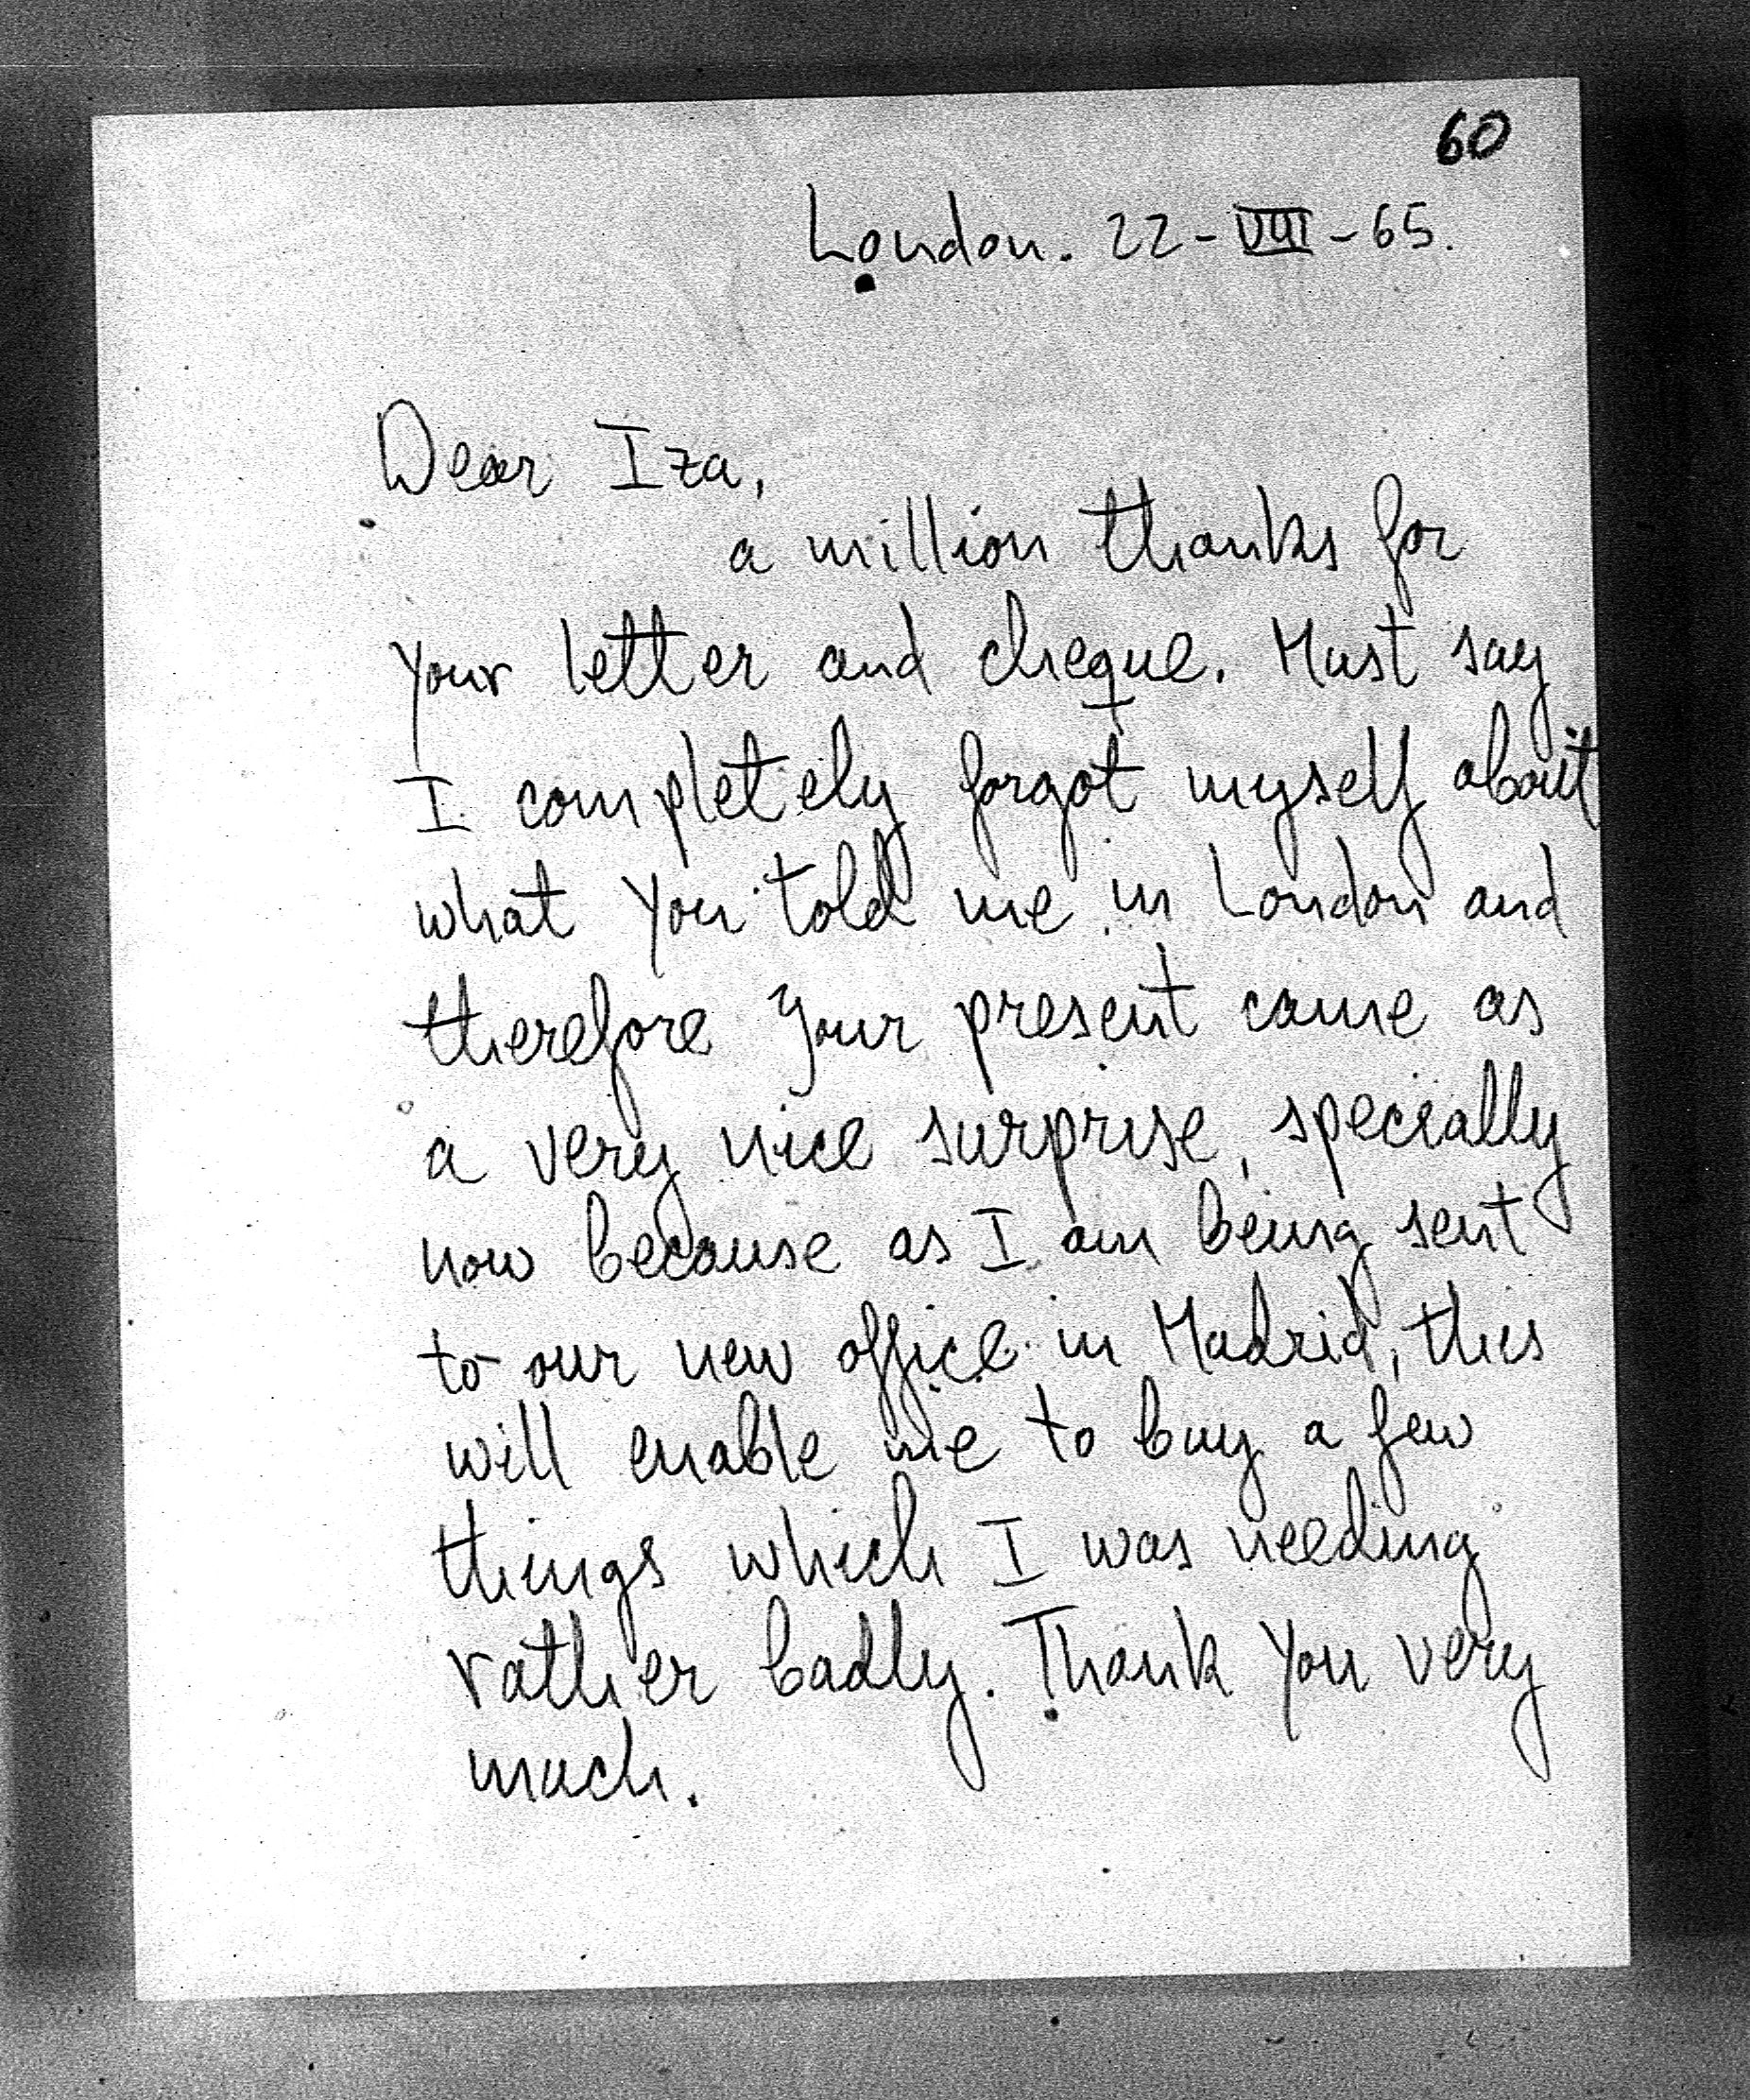 60
London. 22-VIII-65.
Dear Iza,
a million thanks for
Your letter and cheque. Must say
I completely forgot myself about
what You told me in London and
therefore Your present came as
a very nice surprise, specially
now because as I am being sent
to our new office in Madrid, this
will enable me to buy a few
things which I was needing
rather badly. Thank You very
much.